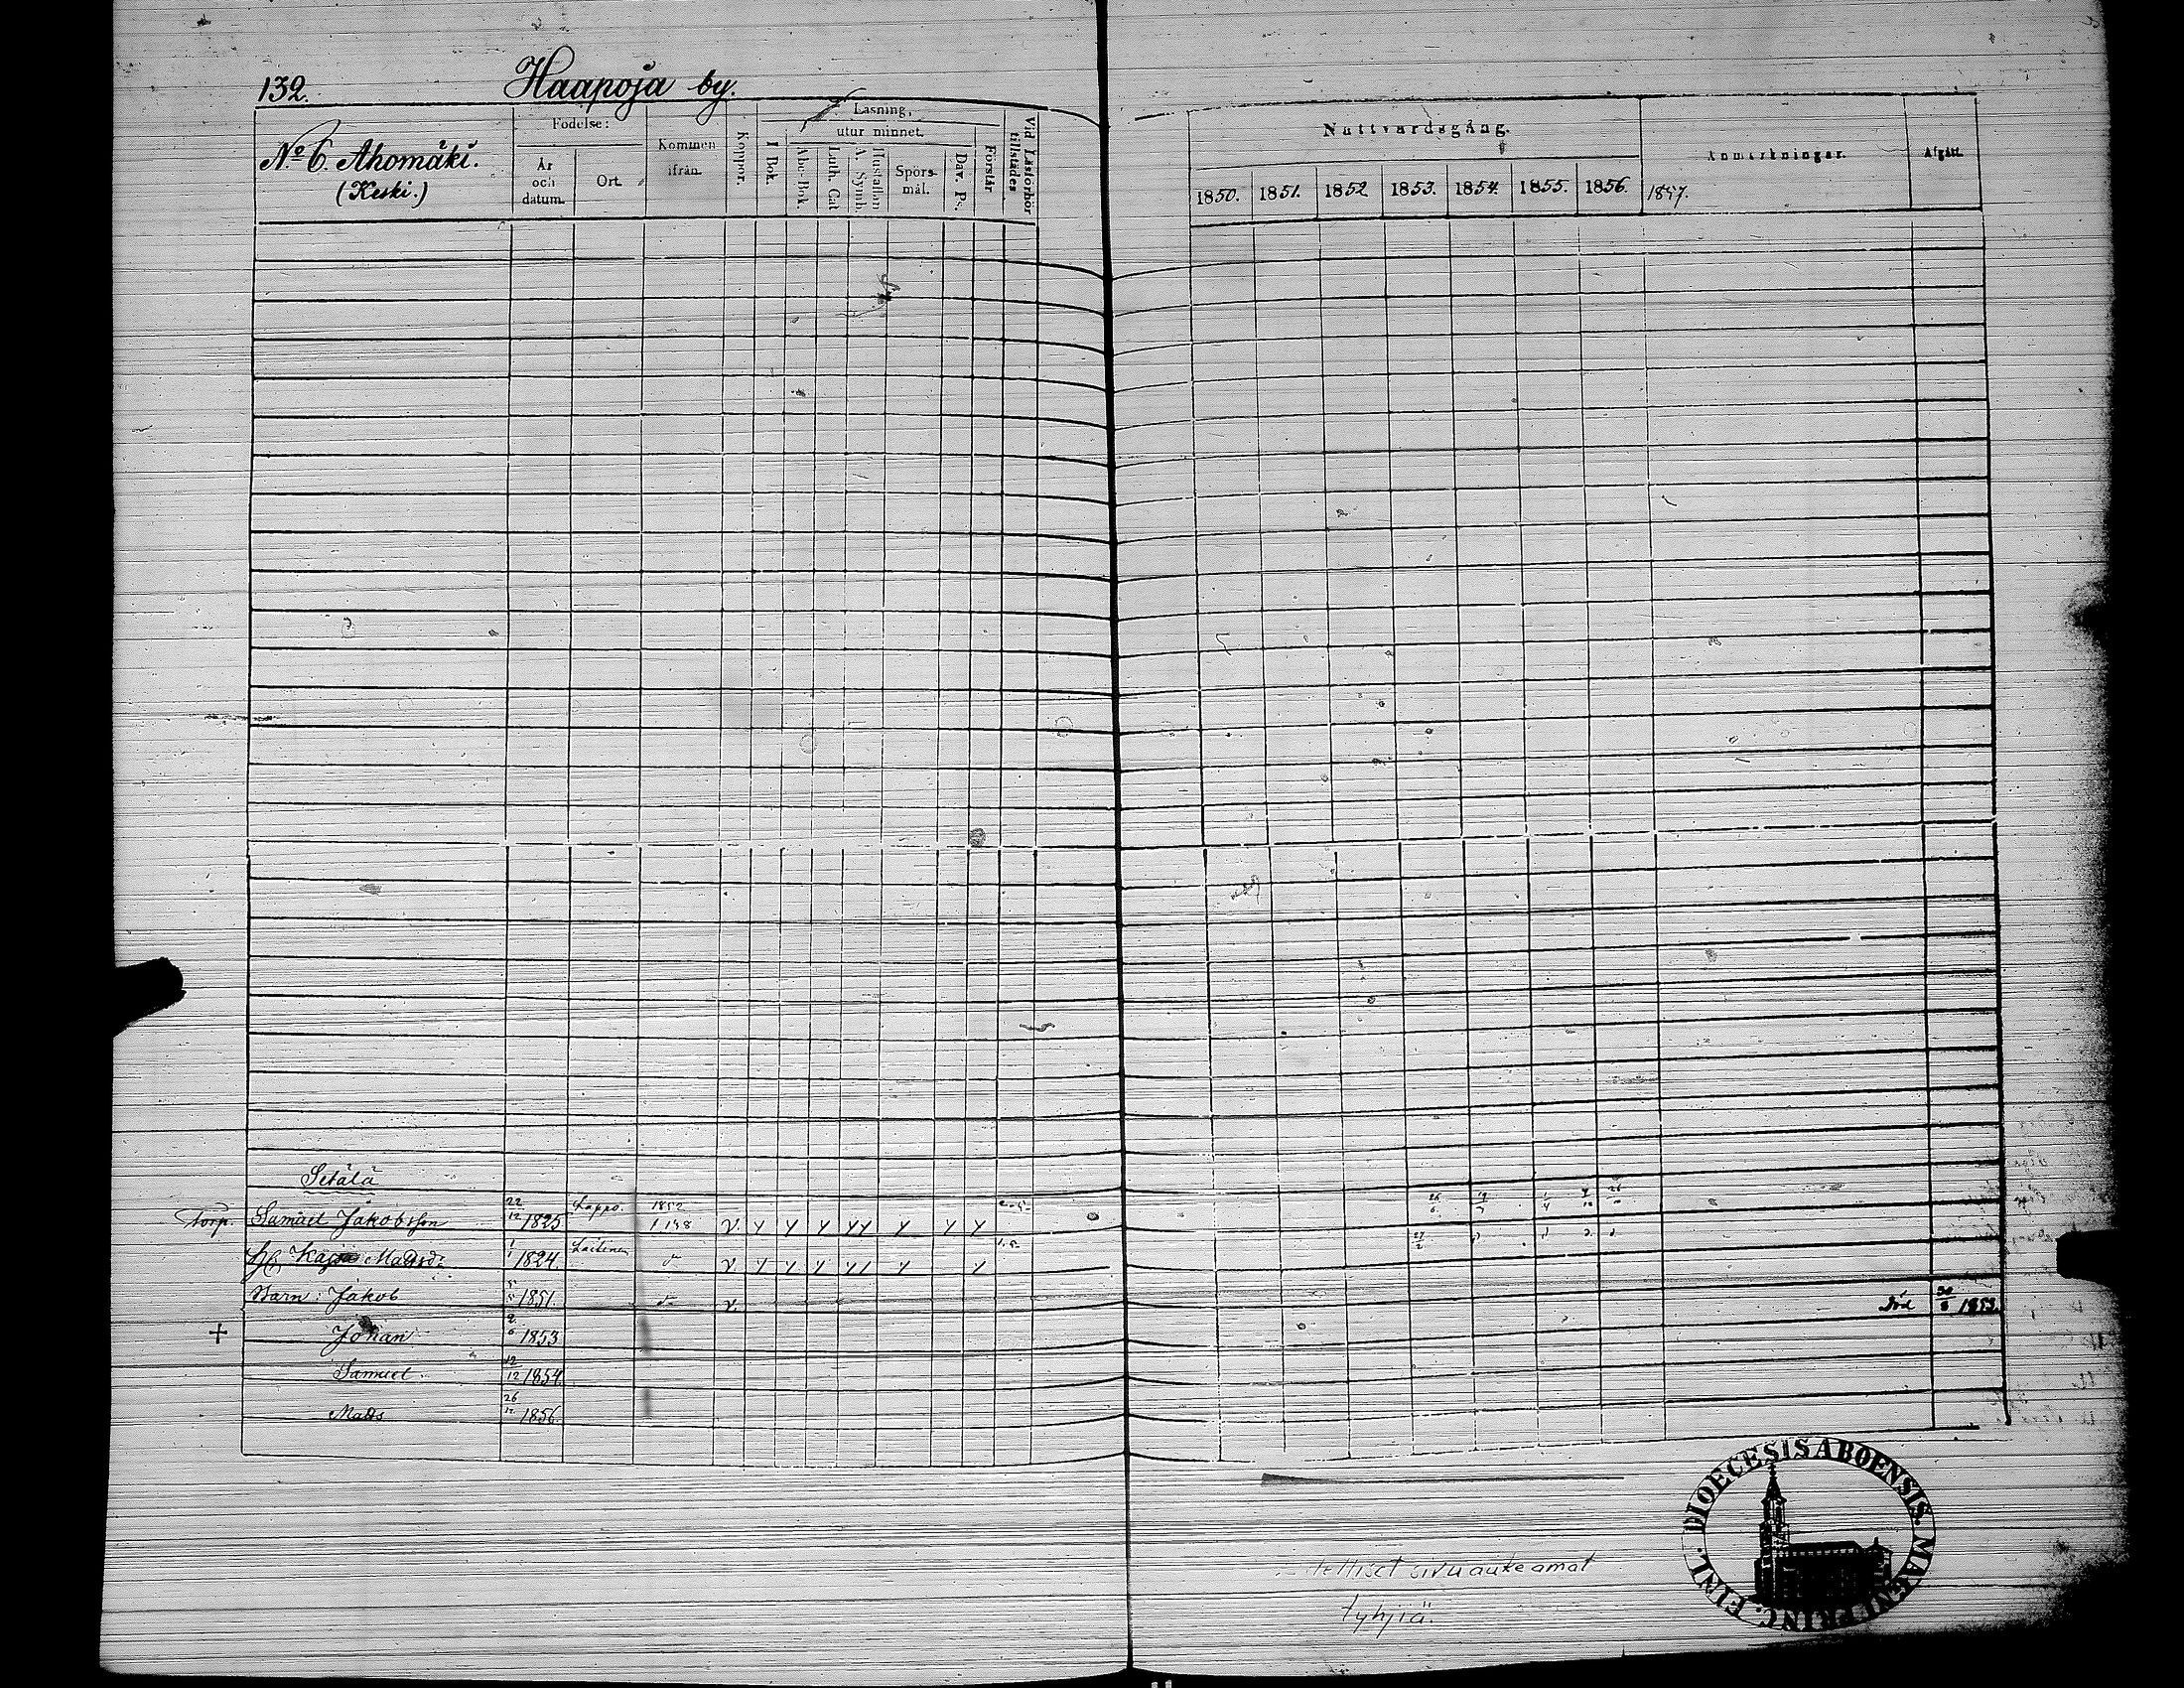 132. Haapoja by.
No 6. Ahomäki.
(Keski.)
Födelse:
År och datum.
Ort.
Kommen ifrån.
Koppor.
Läsning,
I Bok.
utur minnet.
Abc-Bok.
Luth. Cat
A. Symb.
Hustaflan
Spörsmål.
Dav. Ps.
Förstår
Vid Läsförhör tillstädes
Nattvardsgång.
1850. 1851. 1852 1853. 1854. 1855. 1856. 1857.
Anmärkningar.
Afgått.
Setälä
Torp. Samuel Jakobsson 22/12 1825 Lappo. 1852
H. Kajsa Matsd: 1/1 1824.
Barn: Jakob 1851.
+ Johan 2/6 1853 död 1853.
Samuel. 12/12 1854.
Matts 26/12 1856.
sivuaukeamat
tyhjiä.
DIOECESIS ABOENSIS. MAGNI PRINC. FINL.